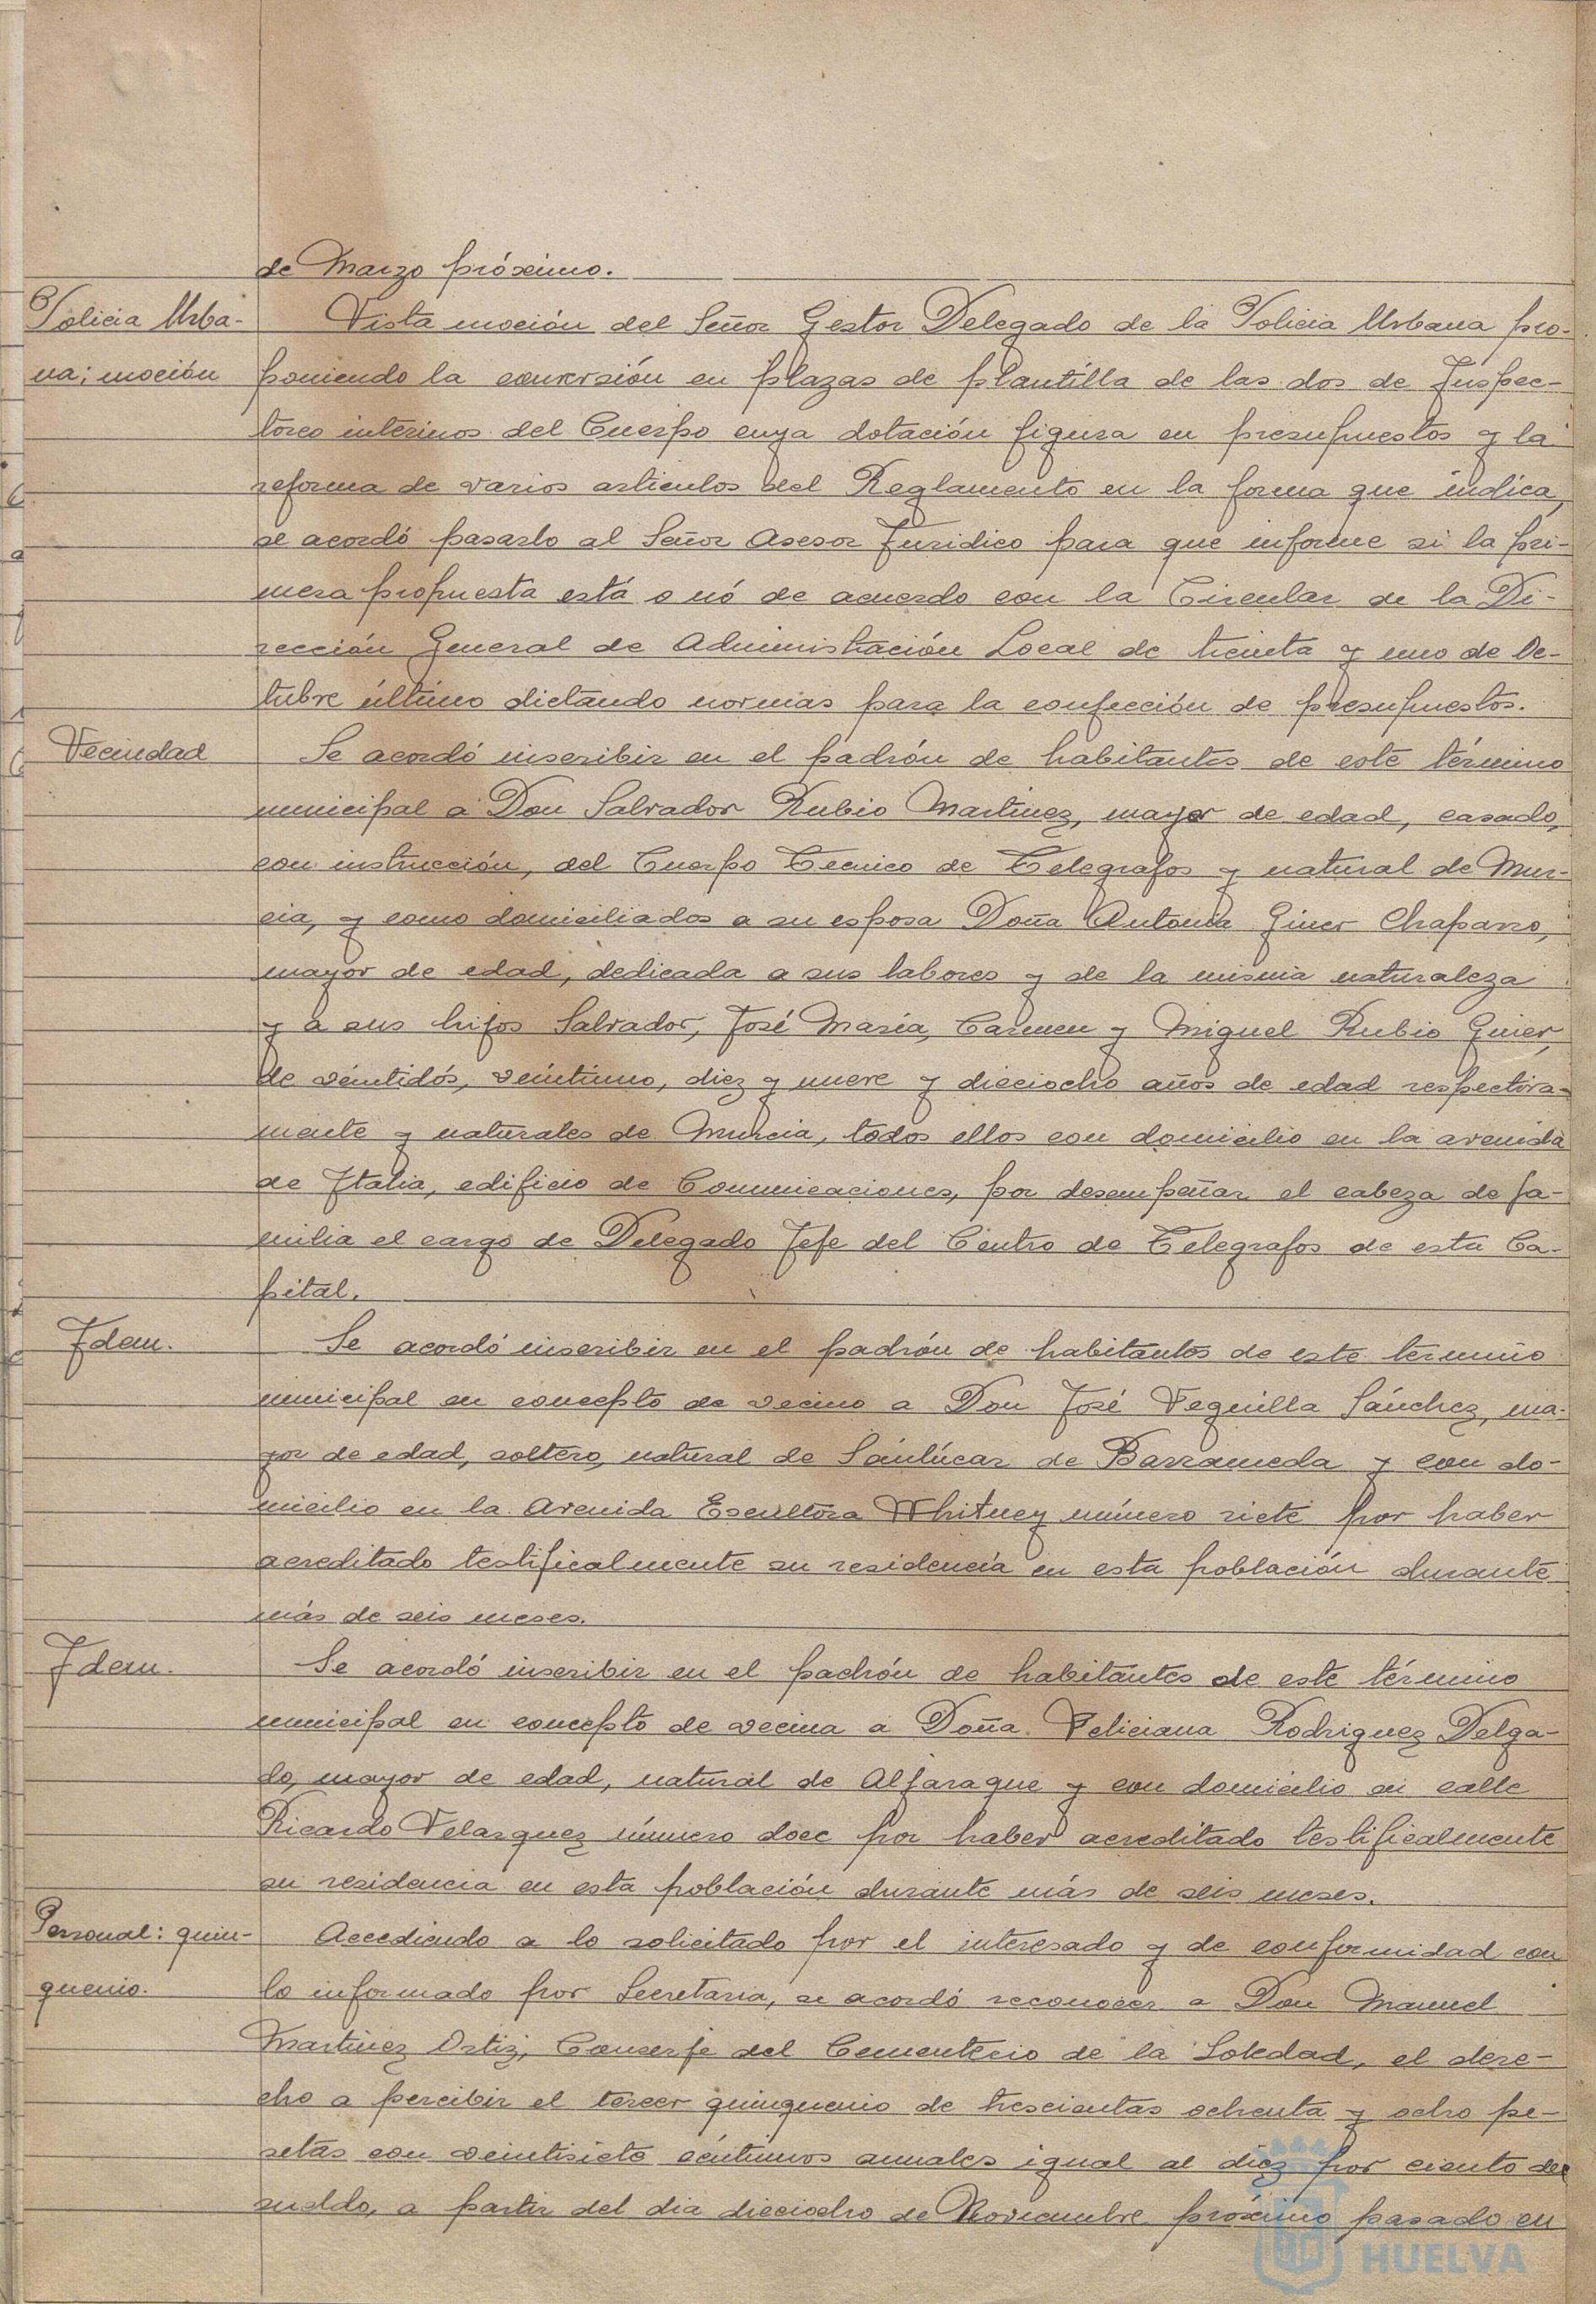 de Marzo próximo.
Policia Urba-
na; moción
Vista moción del Señor Gestor Delegado de la Policia Urbana pro-
poniendo la conversión en plazas de plantilla de las dos de Inspec-
tores interinos del Cuerpo cuya dotación figura en presupuestos y la
reforma de varios articulos del Reglamento en la forma que indica,
se acordó pasarlo al Señor Asesor Juridico para que informe si la pri-
mera propuesta está o nó de acuerdo con la Circular de la Di-
rección General de Administración Local de treinta y uno de Oc-
tubre último dictando normas para la confección de presupuestos.
Vecindad
Se acordó inscribir en el padrón de habitantes de este término
municipal a Don Salvador Rubio Martinez, mayor de edad, casado,
con instrucción, del Cuerpo Tecnico de Telegrafos y natural de Mur-
cia, y como domiciliados a su esposa Doña Antonia Giner Chaparro,
mayor de edad, dedicada a sus labores y de la misma naturaleza
y a sus hijos Salvador, José Maria, Carmen y Miguel Rubio Giner,
de veintidós, veintiuno, diez y nueve y dieciocho años de edad respectiva-
mente y naturales de Murcia, todos ellos con domicilio en la avenida
de Italia, edificio de Comunicaciones, por desempeñar el cabeza de fa-
milia el cargo de Delegado Jefe del Centro de Telegrafos de esta Ca-
pital.
Idem.
Se acordó inscribir en el padrón de habitantes de este termino
municipal en concepto de vecino a Don José Veguilla Sánchez, ma-
yor de edad, soltero, natural de Sanlúcar de Barrameda y con do-
micilio en la Avenida Escultora Whitney número siete por haber
acreditado testificalmente su residencia en esta población durante
más de seis meses.
Idem.
Se acordó inscribir en el padrón de habitantes de este término
municipal en concepto de vecina a Doña Feliciana Rodriguez Delga-
do, mayor de edad, natural de Aljaraque y con domicilio en calle
Ricardo Velazquez número doce por haber acreditado testificalmente
su residencia en esta población durante más de seis meses.
Personal: quin-
quenio.
Accediendo a lo solicitado por el interesado y de conformidad con
lo informado por Secretaria, se acordó reconocer a Don Manuel
Martinez Ortiz, Conserje del Cementerio de la Soledad, el dere-
cho a percibir el tercer quinquenio de trescientas ochenta y ocho pe-
setas con veintisiete céntimos anuales igual al diez por ciento del
sueldo, a partir del dia dieciocho de Noviembre próximo pasado en
HUELVA